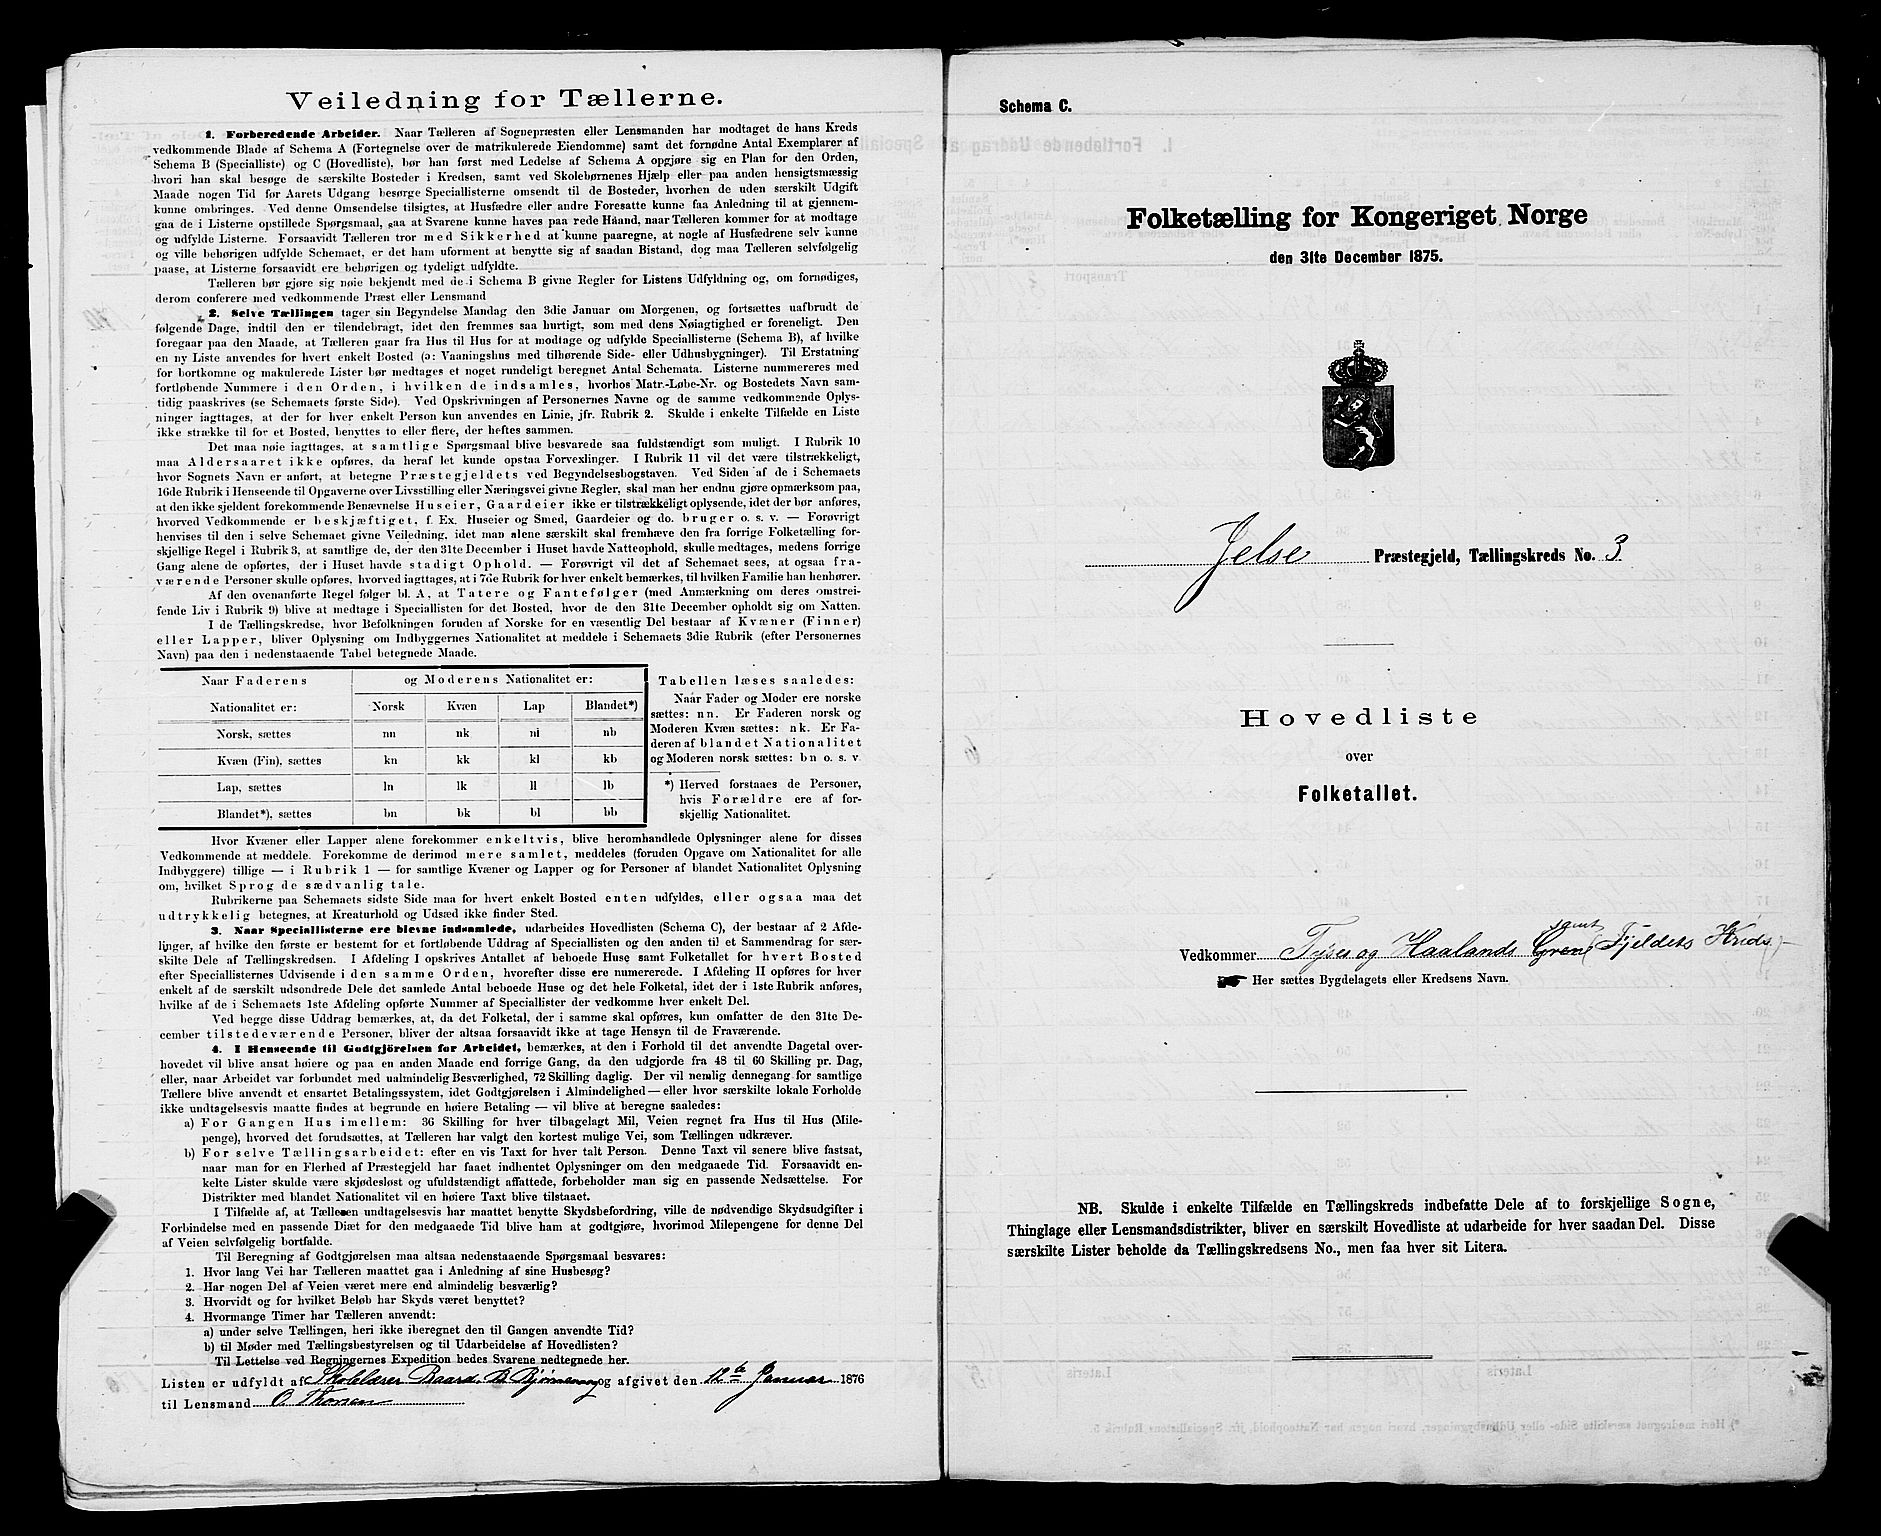 Veiledning for Tællerne.
1. Forberedende Arbeider. Naar Tælleren af Sognepræsten eller Lensmanden har modtaget de hans Kreds
vedkommende Blade af Schema A (Fortegnelse over de matrikulerede Eiendomme) samt det fornødne Antal Exemplarer af
Schema B (Specialliste) og C (Hovedliste), bør han først med Ledelse af Schema A opgjøre sig en Plan for den Orden,
hvori han skal besøge de særskilte Bosteder i Kredsen, samt ved Skolebørnenes Hjælp eller paa anden hensigtsmæssig
Maade nogen Tid før Aarets Udgang besørge Speciallisterne omsendt til de Bosteder, hvorhen de uden særskilt Udgift
kunne ombringes. Ved denne Omsendelse tilsigtes, at Husfædre eller andre Foresatte kunne faa Anledning til at gjennem-
gaa de i Listerne opstillede Spørgsmaal, gaa at Svarene kunne haves paa rede Haand, naar Tælleren kommer for at modtage
og udfylde Listerne. Forsaavidt Tælleren tror med Sikkerhed at kunne paaregne, at nogle af Husfædrene selv kunne
og ville behørigen udfylde Schemaet, er det ham uforment at benytte sig af saadan Bistand, dog maa Tælleren selvfølgelig
paase, at Listerne forsaavidt ere behørigen og tydeligt udfyldte.
Tælleren bør gjøre sig nøie bekjendt med de i Schema B givne Regler for Listens Udfyldning og, om fornødiges,
derom conferere med vedkommende Præst eller Lensmand
2. Selve Tællingen tager sin Begyndelse Mandag den 3die Januar om Morgenen, og fortsættes uafbrudt de
følgende Dage, indtil den er tilendebragt, idet den fremmes saa hurtigt, som med dens Nøiagtighed er foreneligt. Den
foregaar paa den Maade, at Tælleren gaar fra Hus til Hus for at modtage og udfylde Speciallisterne (Schema B), af hvilke
en ny Liste anvendes for hvert enkelt Bosted (ɔ: Vaaningshus med tilhørende Side- eller Udhusbygninger). Til Erstatning
for bortkomne og makulerede Lister bør medtages et noget rundeligt beregnet Antal Schemata. Listerne nummereres med
fortløbende Nummere i den Orden, i hvilken de indsamles, hvorhos Matr.-Løbe-Nr. og Bostedets Navn sam-
tidig paaskrives (se Schemaets første Side). Ved Opskrivningen af Personernes Navne og de samme vedkommende Oplys-
ninger iagttages, at der for hver enkelt Person kun anvendes en Linie, jfr. Rubrik 2. Skulde i enkelte Tilfælde en Liste
ikke strække til for et Bosted, benyttes to eller flere, der heftes sammen.
Det maa nøie iagttages, at samtlige Spørgsmaal blive besvarede saa fuldstændigt som muligt. I Rubrik 10
maa Aldersaaret ikke opføres, da heraf let kunde opstaa Forvexlinger. I Rubrik 11 vil det være tilstrækkeligt,
hvor Sognets Navn er anført, at betegne Præstegjeldets ved Begyndelsesbogstaven. Ved Siden af de i Schemaets
16de Rubrik i Henseende til Opgaverne over Livsstilling eller Næringsvei givne Regler, skal man her endnu gjøre opmærksom paa,
at den ikke sjeldent forekommende Benævnelse Huseier, Gaardeier ikke er tilstrækkeligt oplysende, idet der bør anføres,
hvorved Vedkommende er beskjæftiget, f. Ex. Huseier og Smed, Gaardeier og do. bruger o. s. v. — Forøvrigt
henvises til den i selve Schemaet givne Veiledning, idet man alene særskilt skal fremhæve den fra forrige Folketælling for-
skjellige Regel i Rubrik 3, at samtlige de, der den 31te December i Huset havde Natteophold, skulle medtages, medens forrige
Gang alene de opførtes, der i Huset havde stadigt Ophold. — Forøvrigt vil det af Schemaet sees, at ogsaa fra-
værende Personer skulle opføres, hvorved iagttages, at i 7de Rubrik for hver enkelt bemærkes, til hvilken Familie han henhører.
Af den ovenanførte Regel følger bl. A, at Tatere og Fantefølger (med Anmærkning om deres omstrei-
fende Liv i Rubrik 9) blive at medtage i Speciallisten for det Bosted, hvor de den 31te December opholdt sig om Natten.
I de Tællingskredse, hvor Befolkningen foruden af Norske for en væsentlig Del bestaar af Kvæner (Finner)
eller Lapper, bliver Oplysning om Indbyggernes Nationalitet at meddele i Schemaets 3die Rubrik (efter Personernes
Navn) paa den i nedenstaaende Tabel betegnede Maade.
Naar Faderens og Moderens Nationalitet er:
Nationalitet er: Norsk Kvæn Lap Blandet*)
Norsk, sættes nn nk nl nb
Kvæn (Fin), sættes kn kk kl kb
Lap, sættes ln lk ll lb
Blandet*), sættes bn bk bl bb
Tabellen læses saaledes:
Naar Fader og Moder ere norske
sættes: nn. Er Faderen norsk og
Moderen Kvæn sættes: nk. Er Fa-
deren af blandet Nationalitet
og Moderen norsk sættes: bn o. s. v
*) Herved forstaaes de Personer,
hvis Forældre ere af for-
skjellig Nationalitet.
Hvor Kvæner eller Lapper alene forekommer enkeltvis, blive heromhandlede Oplysninger alene for disses
Vedkommende at meddele. Forekomme de derimod mere samlet, meddeles (foruden Opgave om Nationalitet for alle
Indbyggere) tillige — i Rubrik 1 — for samtlige Kvæner og Lapper og for Personer af blandet Nationalitet Oplysning
om, hvilket Sprog de sædvanlig tale.
Rubrikerne paa Schemaets sidste Side maa for hvert enkelt Bosted enten udfyldes, eller ogsaa maa det
udtrykkelig betegnes, at Kreaturhold og Udsæd ikke finder Sted.
3. Naar Speciallisterne ere blevne indsamlede, udarbeides Hovedlisten (Schema C), der bestaar af 2 Afde-
linger, af hvilke den første er bestemt for et fortløbende Uddrag af Speciallisten og den anden til et Sammendrag for sær-
skilte Dele af Tællingskredsen. I Afdeling I opskrives Antallet af beboede Huse samt Folketallet for hvert Bosted
efter Speciallisternes Udvisende i den samme Orden, hvorefter disse ere numererede. I Afdeling II opføres for hver
enkelt af de særskilt udsondrede Dele det samlede Antal beboede Huse og det hele Folketal, idet der i 1ste Rubrik anføres,
hvilke af de i Schemaets 1ste Afdeling opførte Nummer af Speciallister der vedkomme hver enkelt Del.
Ved begge disse Uddrag bemærkes, at, da det Folketal, der i samme skal opføres, kun omfatter de den 31te De-
cember tilstedeværende Personer, bliver der altsaa forsaavidt ikke at tage Hensyn til de Fraværende.
4. I Henseende til Godtgjörelsen for Arbeidet, bemærkes, at den i Forhold til det anvendte Dagetal over-
hovedet vil blive ansat høiere og paa en anden Maade end forrige Gang, da den udgjorde fra 48 til 60 Skilling pr. Dag,
eller, naar Arbeidet var forbundet med ualmindelig Besværlighed, 72 Skilling daglig. Der vil nemlig dennegang for samtlige
Tællere blive anvendt et ensartet Betalingssystem, idet Godtgjørelsen i Almindelighed — eller hvor særskilte lokale Forholde
ikke undtagelsesvis maatte findes at begrunde en høiere Betaling — vil blive at beregne saaledes:
a) For Gangen Hus imellem: 36 Skilling for hver tilbagelagt Mil, Veien regnet fra Hus til Hus (Mile-
penge), hvorved det forudsættes, at Tælleren har valgt den kortest mulige Vei, som Tællingen udkræver.
b) For selve Tællingsarbeidet: efter en vis Taxt for hver talt Person. Denne Taxt vil senere blive fastsat,
naar man for en Flerhed af Præstegjeld har faaet indhentet Oplysninger om den medgaaede Tid. Forsaavidt en-
kelte Lister skulde være skjødesløst og ufuldstændigt affattede, forbeholder man sig en passende Nedsættelse. For
Distrikter med blandet Nationalitet vil en høiere Taxt blive tilstaaet.
I Tilfælde af, at Tælleren undtagelsesvis har maattet benytte Skydsbefordring, ville de nødvendige Skydsudgifter i
Forbindelse med en passende Diæt for den medgaaede Tid blive ham at godtgjøre, hvorimod Milepengene for denne Del
af Veien selvfølgelig bortfalde.
Til Beregning af Godtgjørelsen maa altsaa nedenstaaende Spørgsmaal besvares:
1. Hvor lang Vei har Tælleren maattet gaa i Anledning af sine Husbesøg?
2. Har nogen Del af Veien været mere end almindelig besværlig?
3. Hvorvidt og for hvilket Beløb har Skyds været benyttet?
4. Hvormange Timer har Tælleren anvendt:
a) under selve Tællingen, heri ikke iberegnet den til Gangen anvendte Tid?
b) til Møder med Tællingsbestyrelsen og til Udarbeidelse af Hovedlisten?
Til Lettelse ved Regningernes Expedition bedes Svarene nedtegnede her.
Listen er udfyldt af Skolelærer Baard B og afgivet den 12te Januar 1876
til Lensmand
Schema C.
Folketælling for Kongeriget Norge
den 31te December 1875.
Jelse Præstegjeld, Tællingskreds No. 3
Hovedliste
over
Folketallet.
samt
Vedkommer Tysse og Haalands Grend (Fjeldets Kreds)
Her sættes Bygdelagets eller Kredsens Navn.
NB. Skulde i enkelte Tilfælde en Tællingskreds indbefatte Dele af to forskjellige Sogne,
Thinglage eller Lensmandsdistrikter, bliver en særskilt Hovedliste at udarbeide for hver saadan Del. Disse
særskilte Lister beholde da Tællingskredsens No., men faa hver sit Litera.